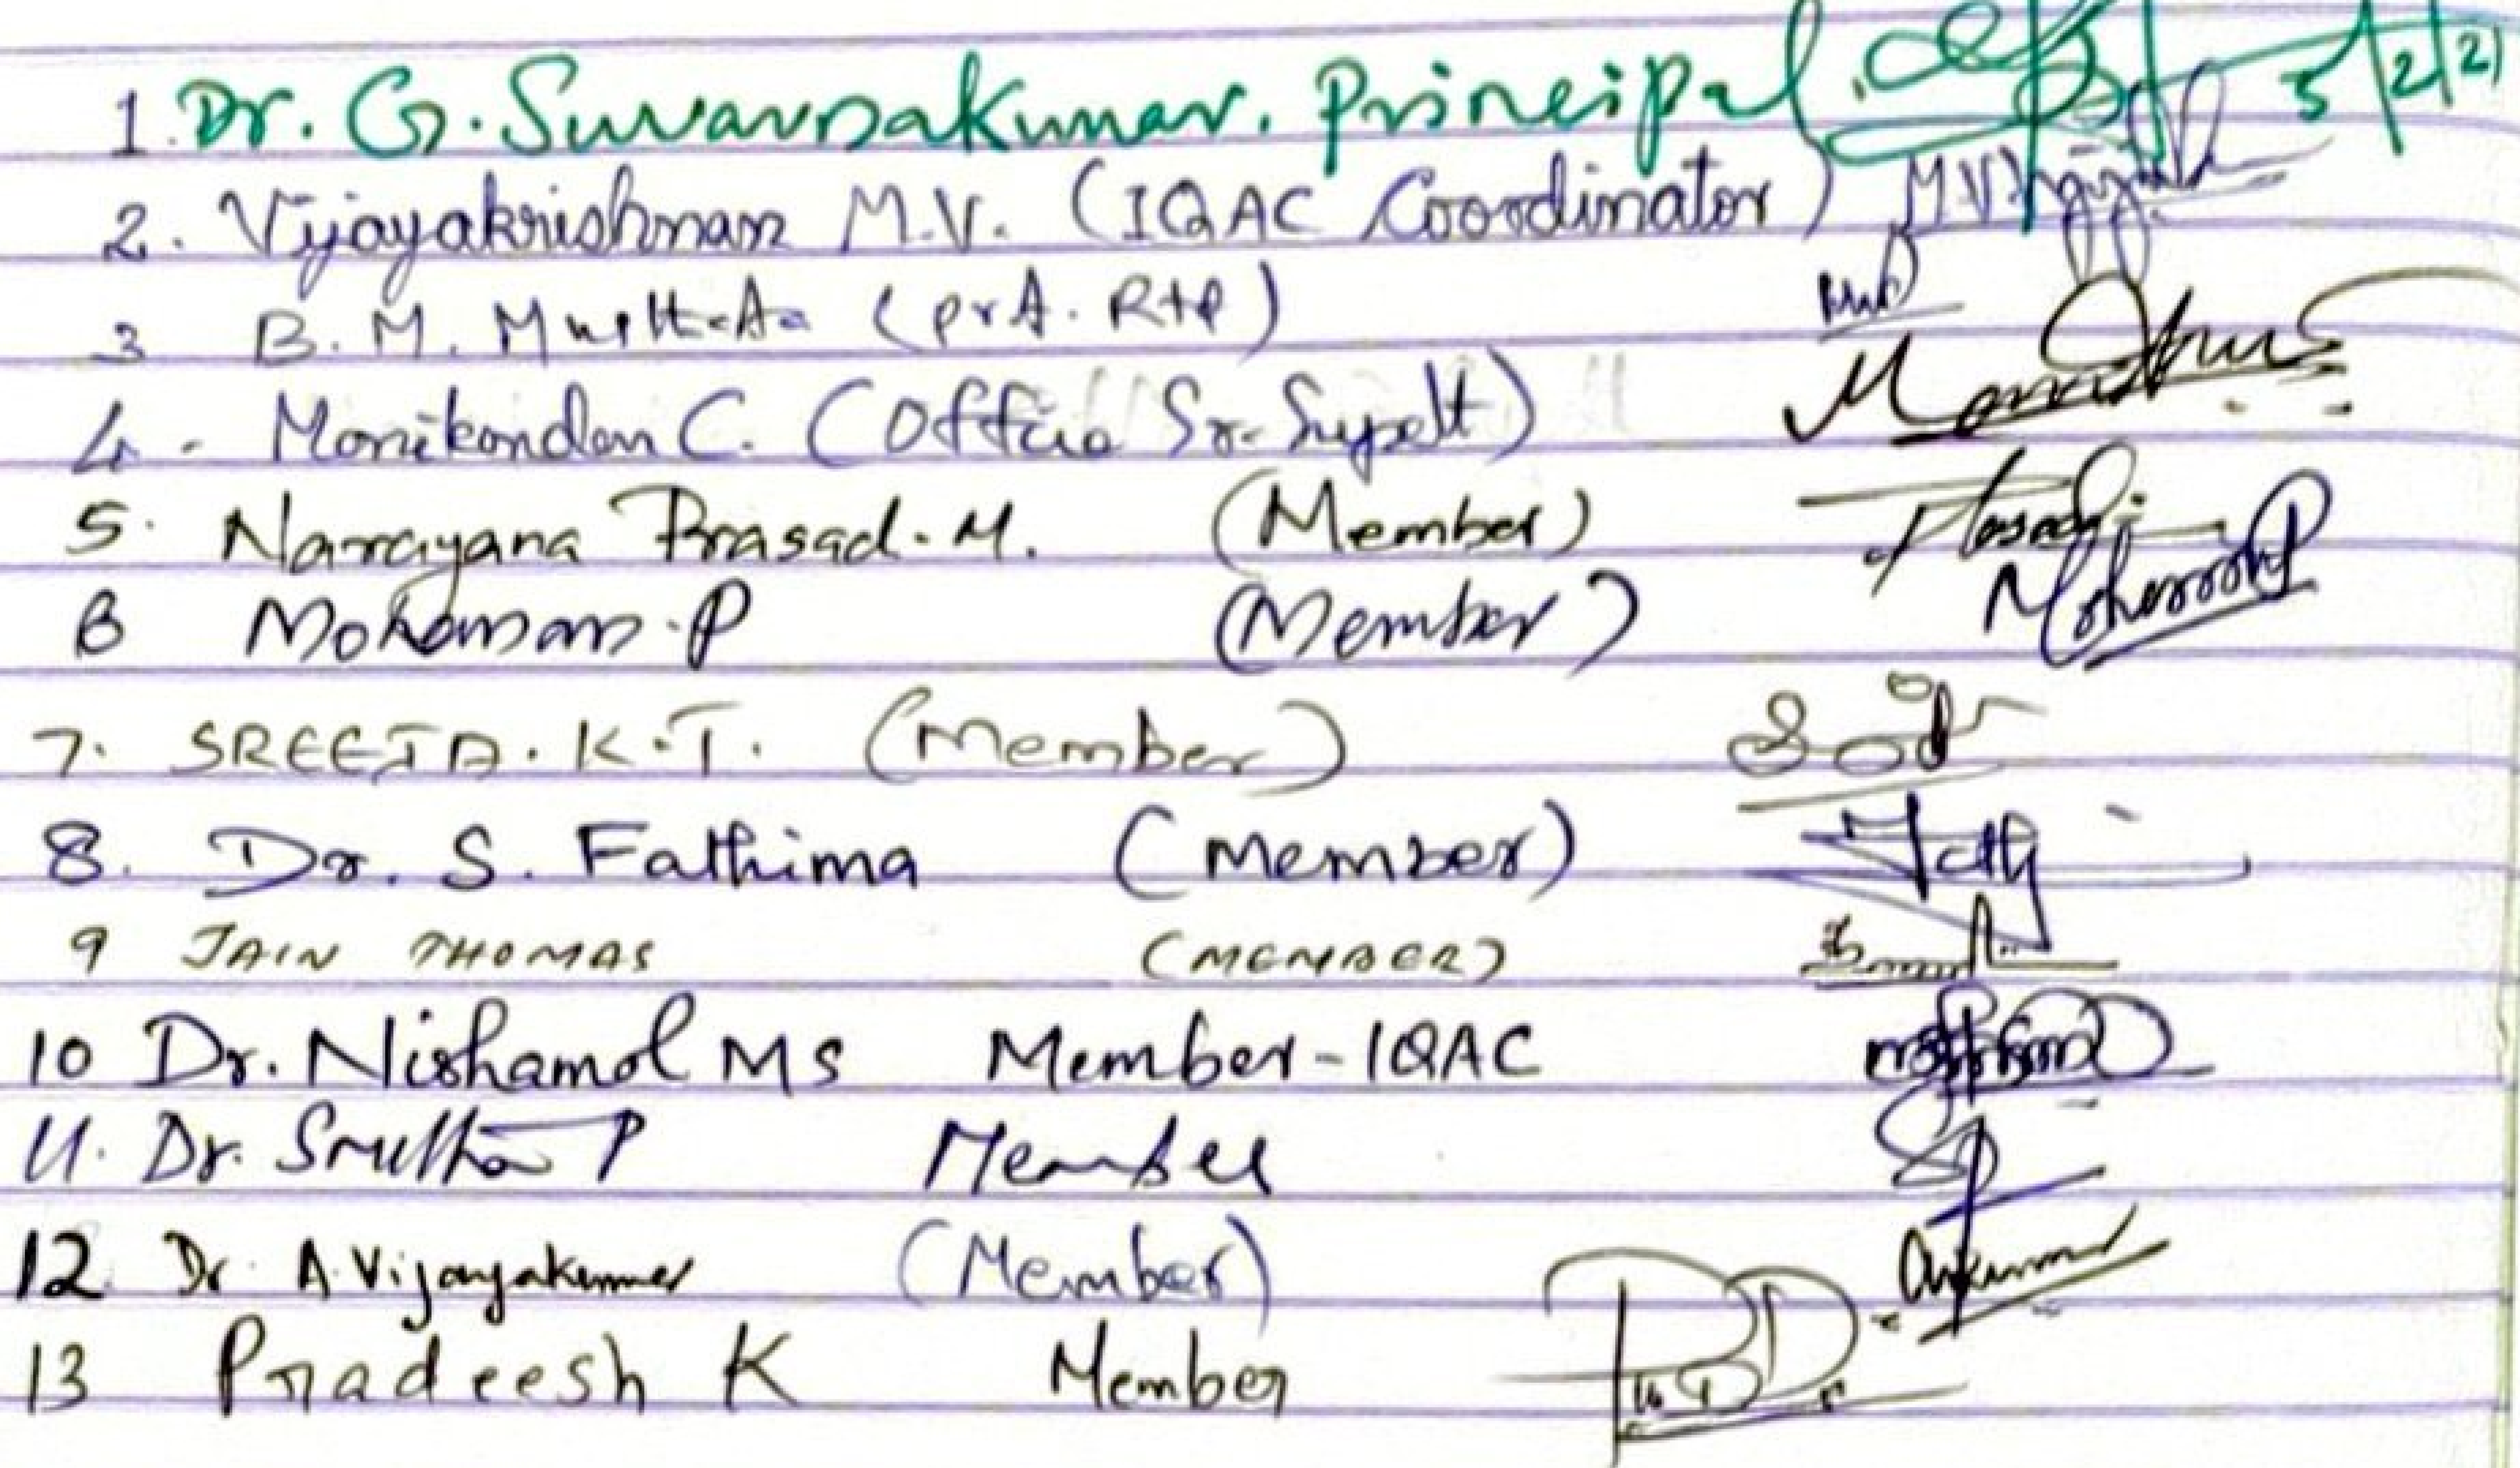 1. Dr. G. Suvarnakumar. Principal 5/2/21
2. Vijayakrishnan M.V. (IQAC Coordinator) M.V.
3 B. M. Musthafa (
4. Manikandan C. (Office Sr. Supdt)
5. Narayana Prasad. M. (Member) Prasad
6 Mohanan. P (Member) Mohanan P
7. SREEJA. K.T. (Member)
8. Dr. S. Fathima (Member) Fathi
9 JAIN THOMAS (MEMBER)
10 Dr. Nishamol MS Member-IQAC
11. Dr. Smitha P Member
12 Dr. A. Vijayakumar (Member)
13 Pradeesh K Member